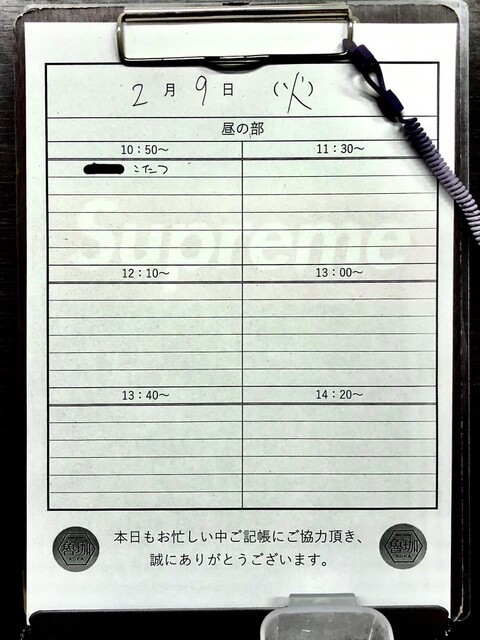 2月9日 (火)
昼の部
10：50〜 11：30〜
こたつ
12：10〜 13：00〜
13：40〜 14：20〜
Supreme
本日もお忙しい中ご記帳にご協力頂き、
誠にありがとうございます。
魯珈 魯珈
ROKA ROKA